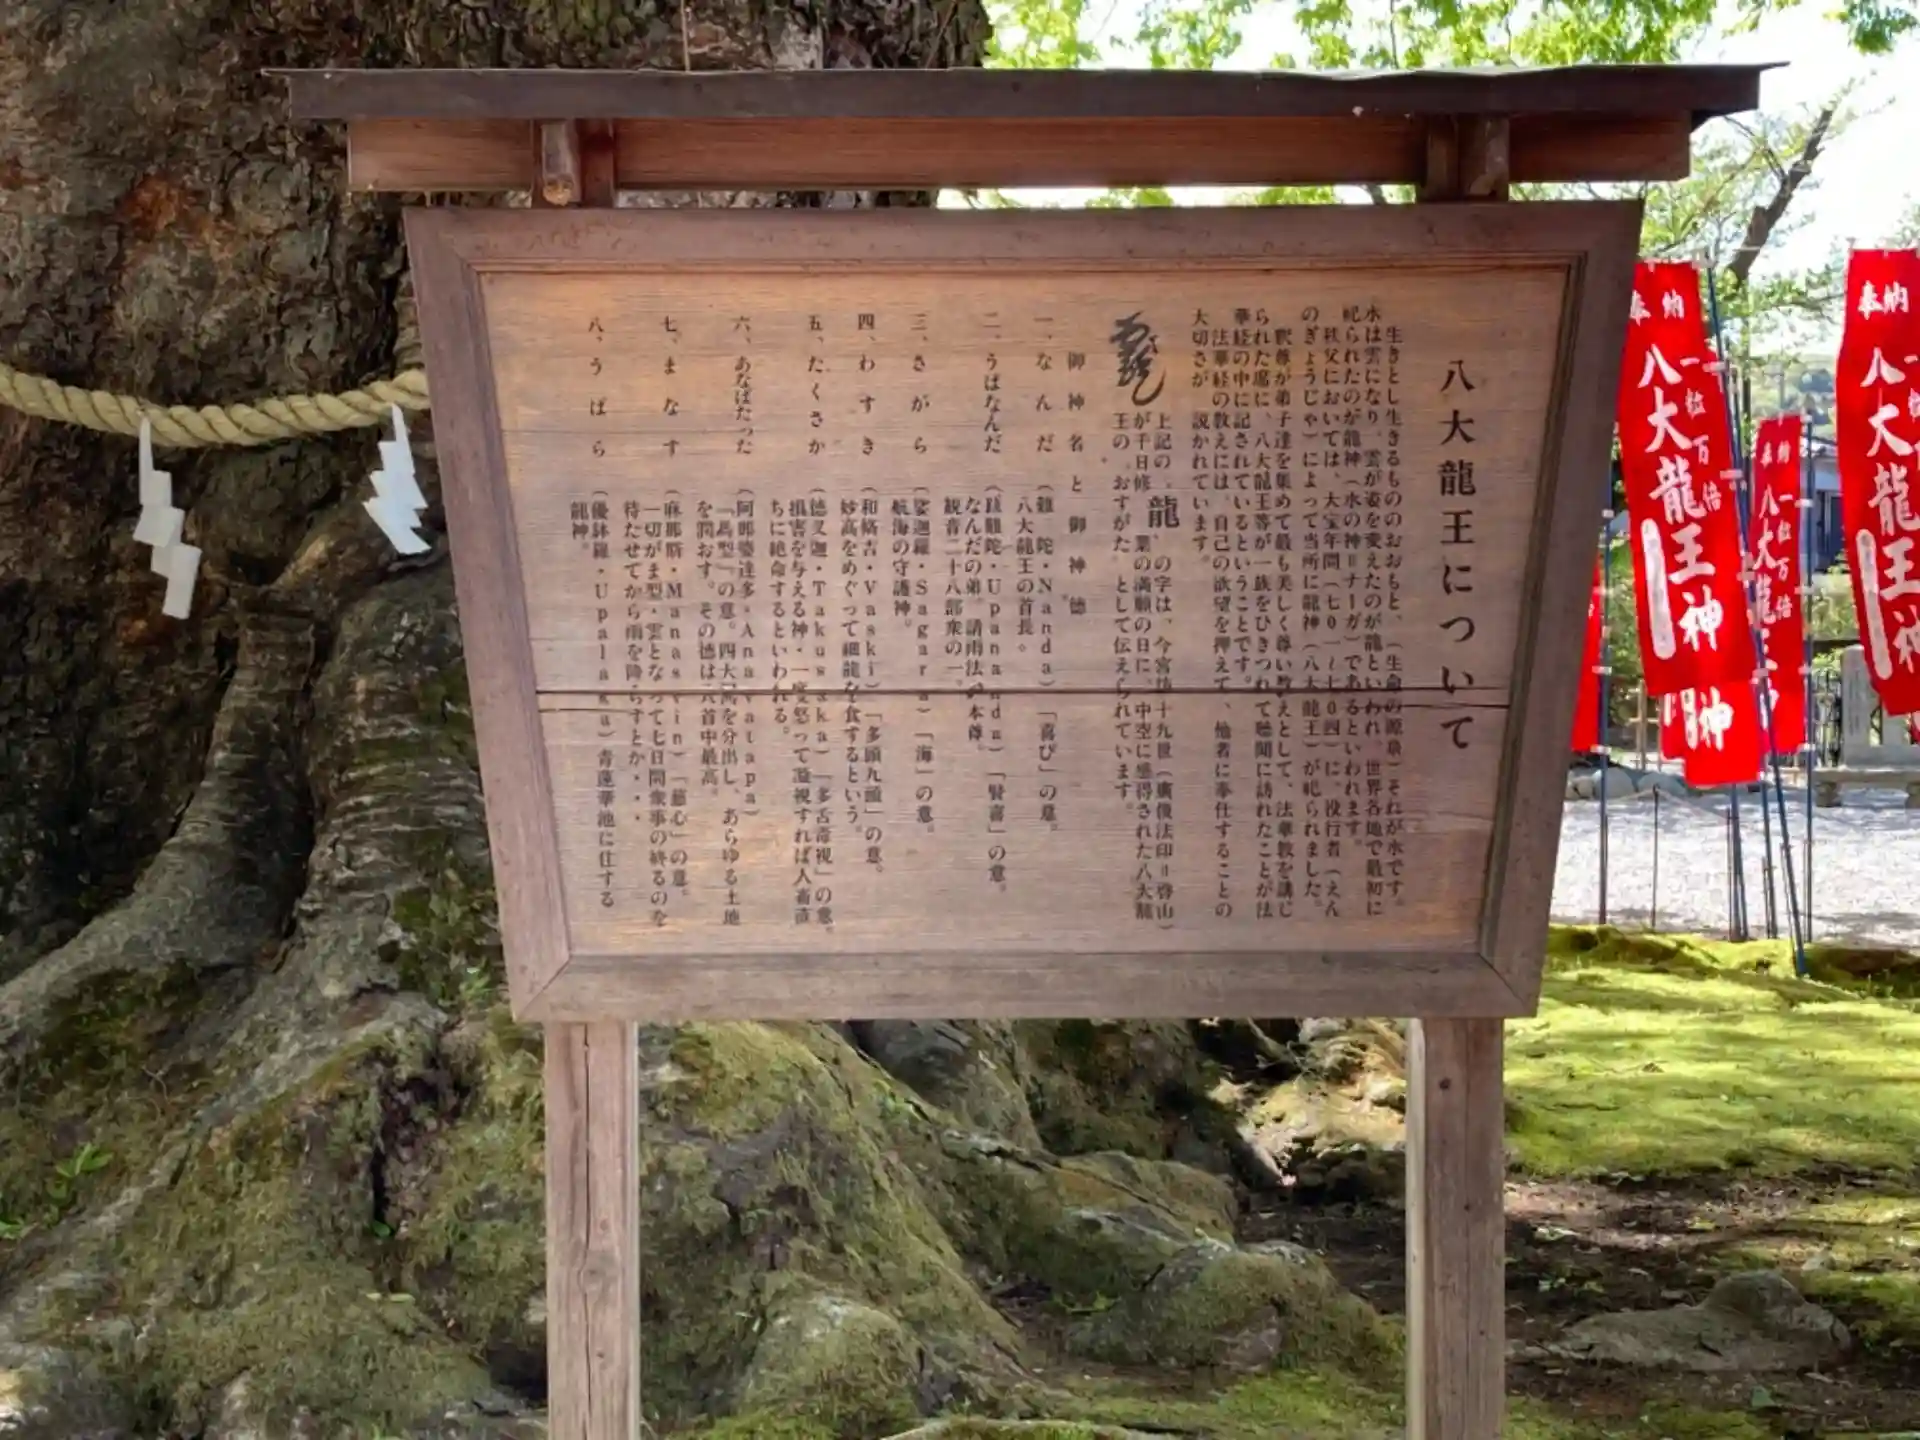 八大龍王について
生きとし生きるもののおおもと、(生命の源泉)それが水です。
水は雲になり、雲が姿を変えたのが龍といわれ、世界各地で最初に
祀られたのが龍神(水の神=ナーガ)であるといわれます。
秩父においては、大宝年間(七0一〜七0四)に、役行者(えん
のぎょうじゃ)によって当所に龍神(八大龍王)が祀られました。
釈尊が弟子達を集めて最も美しく尊い教えとして、法華教を講じ
られた席に、八大龍王等が一族をひきつれて聴聞に訪れたことが法
華経の中に記されているということです。
法華経の教えには、自己の欲望を押えて、他者に奉仕することの
大切さが 説かれています。
龍
上記の、龍、の字は、今宮坊十九世(廣俊法印=啓山)
が千日修 業の満願の日に、中空に感得された八大龍
王の 、おすがた、として伝えられています。
御神名と御神徳
一、なんだ (難 陀・Nanda)「喜び」の意。
八大龍王の首長。
二、うばなんだ (跋難陀・Upananda)「賢喜」の意。
なんだの弟。請雨法の本尊。
観音二十八部衆の一。
三、さがら (娑迦羅・Sagara)「海」の意。
航海の守護神。
四、わすき (和脩吉・Vaski)「多頭九頭」の意。
妙高をめぐって細龍を食するという。
五、たくさか (徳叉迦・Takusaka)「多舌毒視」の意。
損害を与える神・一度怒って凝視すれば人畜直
ちに絶命するといわれる。
六、あなばたった (阿那婆達多・Anavatapa)
「馬型」の意。四大河を分出し、あらゆる土地
を潤おす。その徳は八首中最高。
七、まなす (麻那斯・Manasvin)「慈心」の意。
一切がま型・雲となって七日間衆事の終るのを
待たせてから雨を降らすとか・・・
八、うぱら (優鉢羅・Upalaka)青蓮華池に住する
龍神。
奉納
一位万倍
八大龍王神
奉納
一位万倍
八大龍王神
奉納
八大龍王神
神